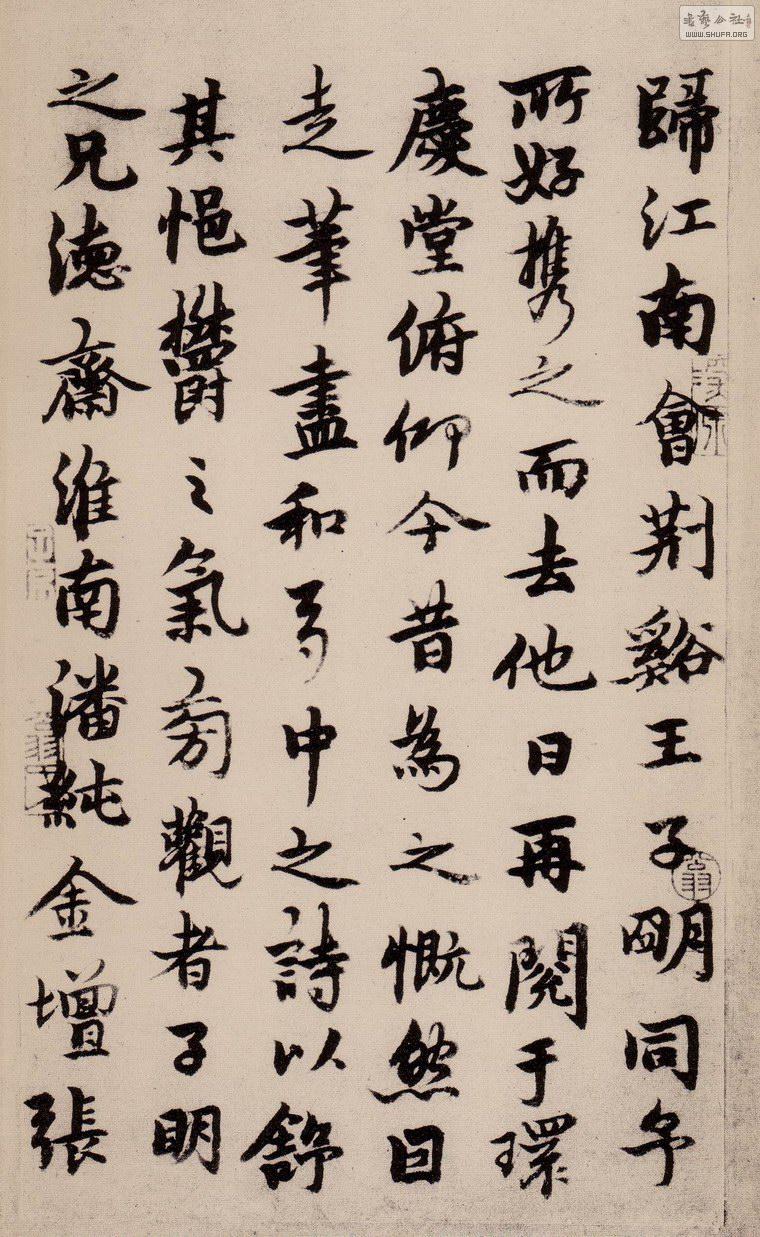 歸江南會荆谿王子明同予
所好攜之而去他日再閱于環
慶堂俯仰今昔為之慨然因
走筆盡和弓中之詩以舒
其悒鬱之氣旁觀者子明
之兄德齋淮南潘純金壇張
WWW.SHUFA.ORG